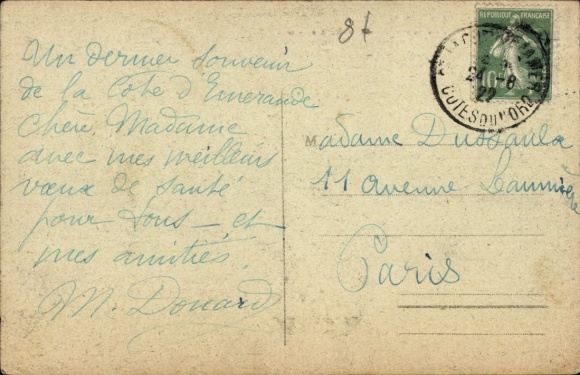 8f
Un dernier souvenir
de la Côte d'Emeraude
chère Madame
avec mes meilleurs
vœux de santé
pour tous — et
mes amitiés.
M. Douard
REPUBLIQUE FRANÇAISE
10
24 - 8
22
COTES DU NORD
Madame Dussaula
11 Avenue
Paris